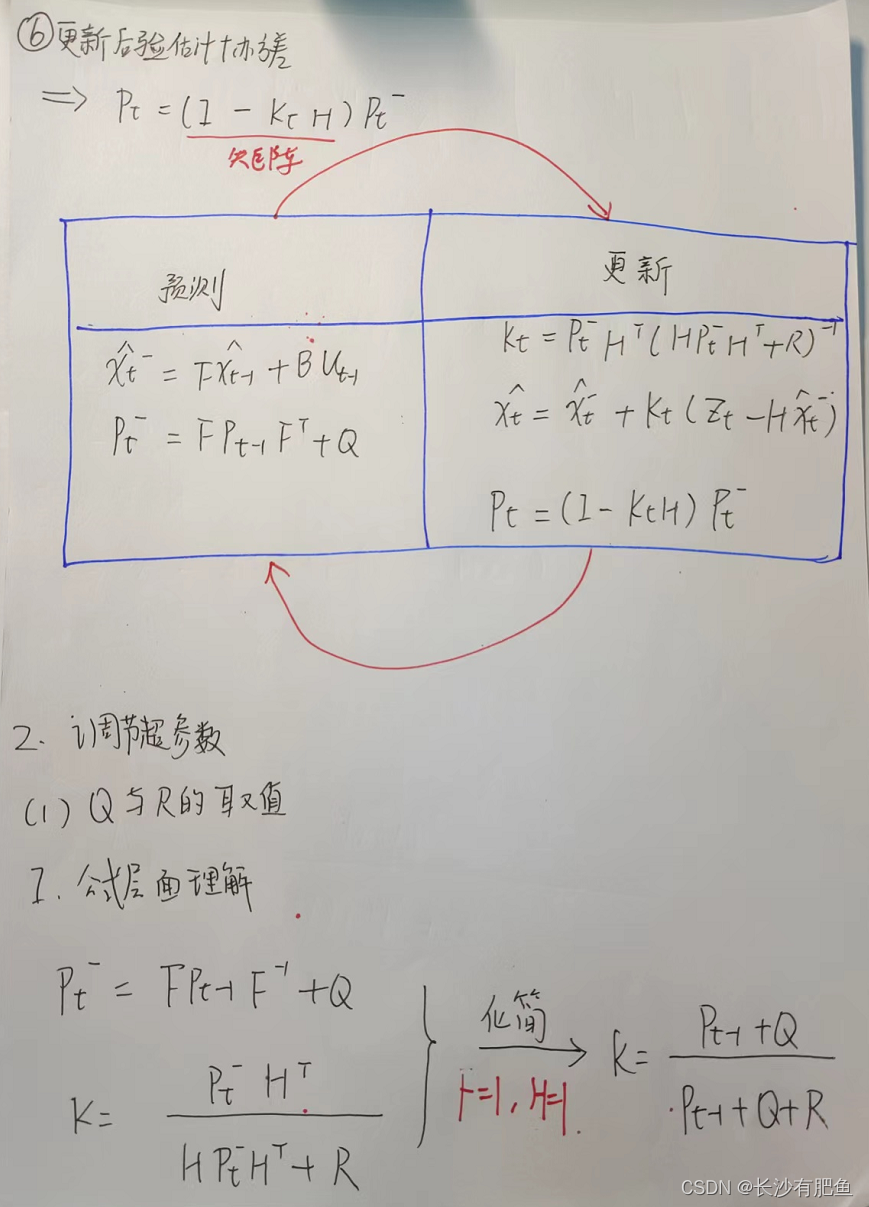 ⑥更新后验估计协方差
⇒ Pt = (I - Kt H) Pt⁻
矩阵
预测
更新
x̂t⁻ = Fx̂t-1 + BUt-1
Pt⁻ = FPt-1 Fᵀ + Q
Kt = Pt⁻ Hᵀ (HPt⁻Hᵀ + R)⁻¹
x̂t = x̂t⁻ + Kt (Zt - Hx̂t⁻)
Pt = (I - KtH) Pt⁻
2. 调节超参数
(1) Q与R的取值
I. 公式层面理解
Pt⁻ = FPt-1 F⁻¹ + Q
K = Pt⁻ Hᵀ / HPt⁻Hᵀ + R
化简
F=1, H=1.
K = Pt-1 + Q / Pt-1 + Q + R
CSDN @长沙有肥鱼